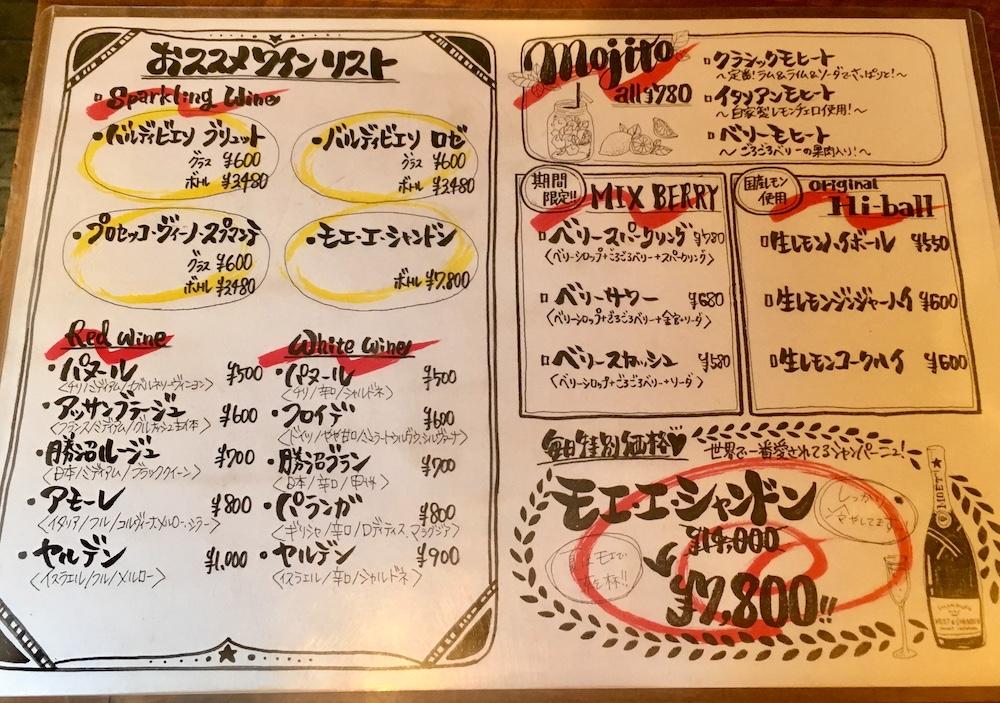 おススメワインリスト
Sparkling Wine
・バルディビエソ ブリュット
グラス ¥600
ボトル ¥3480
・バルディビエソ ロゼ
グラス ¥600
ボトル ¥3,480
・プロセッコ・ヴィーノ・スプマンテ
グラス ¥600
ボトル ¥3480
・モエ・エ・シャンドン
ボトル ¥7,800
Red Wine
・パヌール ¥500
〈チリ/ミディアム/カベルネソーヴィニヨン〉
・アッサンブラージュ ¥600
〈フランス/ミディアム/グルナッシュ主体〉
・勝沼ルージュ ¥700
〈日本/ミディアム/ブラッククイーン〉
・アモーレ ¥800
〈イタリア/フル/コルヴィーナ・メルロー・シラー〉
・ヤルデン ¥1,000
〈イスラエル/フル/メルロー〉
White Wine
・パヌール ¥500
〈チリ/辛口/シャルドネ〉
・フロイデ ¥600
・勝沼ブラン ¥700
〈日本/辛口/甲州〉
・パランガ ¥800
〈ギリシャ/辛口/ロディティス、マラグジア〉
・ヤルデン ¥900
〈イスラエル/辛口/シャルドネ〉
Mojito
all ¥780
クラシックモヒート
〜定番!ラム&ライム&ソーダでさっぱりと!〜
イタリアンモヒート
〜自家製レモンチェロ使用!〜
ベリーモヒート
〜ごろごろベリーの果肉入り!〜
期間限定!!
MIX BERRY
ベリースパークリング ¥780
〈ベリーシロップ+ごろごろベリー+スパークリング〉
ベリーサワー ¥680
〈ベリーシロップ+ごろごろベリー+金宮+ソーダ〉
ベリースカッシュ ¥580
〈ベリーシロップ+ごろごろベリー+ソーダ〉
国産レモン使用
original
Hi-ball
生レモンハイボール ¥550
生レモンジンジャーハイ ¥600
生レモンコークハイ ¥600
毎日特別価格♥
世界で一番愛されてるシャンパーニュ!
モエ・エ・シャンドン
しっかり冷やしてます
¥14,000
¥7,800!!
MOET